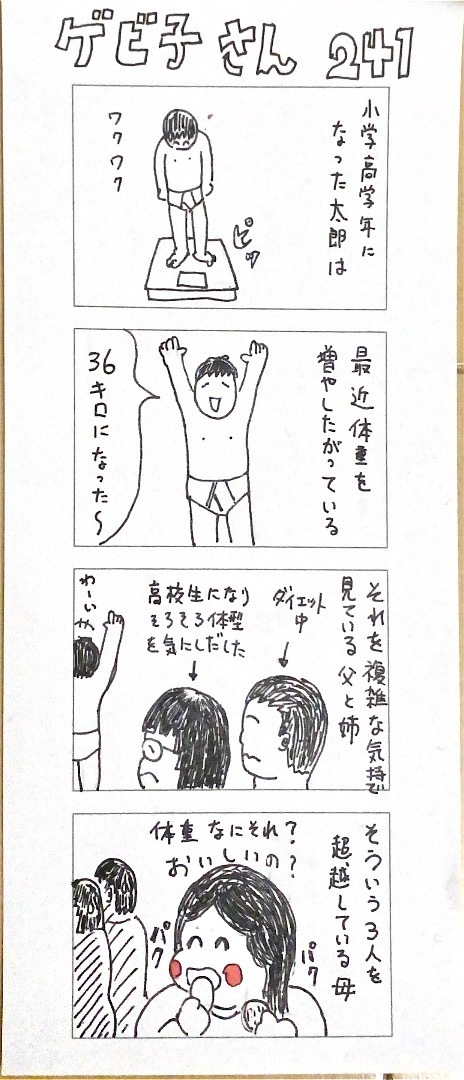 ゲビ子さん 241
小学高学年に
なった太郎は
ワクワク
ピッ
最近体重を
増やしたがっている
36
キロになった〜
それを複雑な気持で
見ている父と姉
ダイエット
中
高校生になり
そろそろ体型
を気にしだした
わーい
そういう3人を
超越している母
体重なにそれ?
おいしいの?
パク
パク